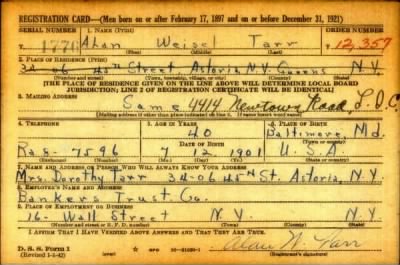 REGISTRATION CARD—(Men born on or after February 17, 1897 and on or before December 31, 1921)
SERIAL NUMBER 1. NAME (Print) ORDER NUMBER
1776 Alan Weisel Tarr 12,357
(First) (Middle) (Last)
2. PLACE OF RESIDENCE (Print)
34-06 45th Street Astoria N.Y. Queens N.Y.
(Number and street) (Town, township, village, or city) (County) (State)
[THE PLACE OF RESIDENCE GIVEN ON THE LINE ABOVE WILL DETERMINE LOCAL BOARD
JURISDICTION; LINE 2 OF REGISTRATION CERTIFICATE WILL BE IDENTICAL]
3. MAILING ADDRESS
Same 4414 Newtown Road L.I.C.
[Mailing address if other than place indicated on line 2. If same insert word same]
4. TELEPHONE 5. AGE IN YEARS 6. PLACE OF BIRTH
40 Baltimore, Md.
DATE OF BIRTH (Town or county)
Ra 8-7596 7 12 1901 U.S.A.
(Exchange) (Number) (Mo.) (Day) (Yr.) (State or country)
7. NAME AND ADDRESS OF PERSON WHO WILL ALWAYS KNOW YOUR ADDRESS
Mrs. Dorothy Tarr 34-06 45th St. Astoria, N.Y.
8. EMPLOYER'S NAME AND ADDRESS
Bankers Trust Co.
9. PLACE OF EMPLOYMENT OR BUSINESS
16- Wall Street N.Y. N.Y.
(Number and street or R. F. D. number) (Town) (County) (State)
I AFFIRM THAT I HAVE VERIFIED ABOVE ANSWERS AND THAT THEY ARE TRUE.
D. S. S. Form 1
(Revised 1-1-42) (over) GPO Alan W. Tarr
(Registrant's signature)